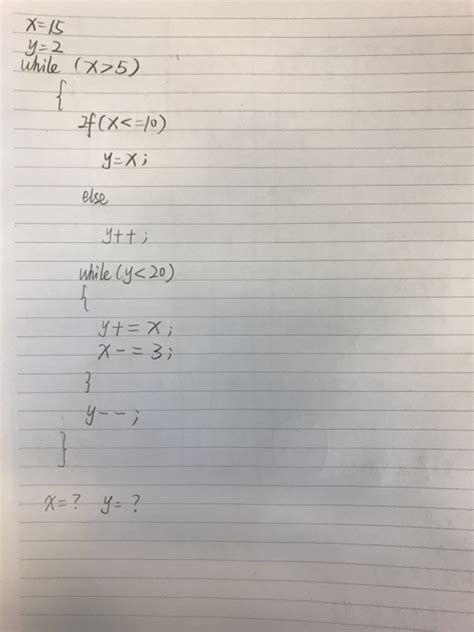 x=15
y=2
while (x>5)
{
If(x<=10)
y=x;
else
y++;
while(y<20)
{
y+=x;
x-=3;
}
y--;
}
x=? y=?